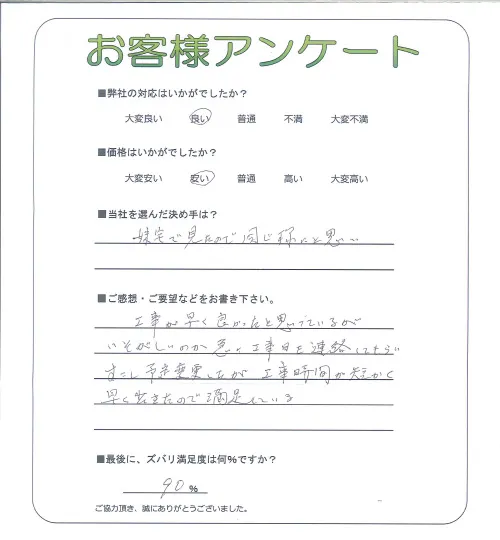 お客様アンケート
■弊社の対応はいかがでしたか？
大変良い 良い 普通 不満 大変不満
■価格はいかがでしたか？
大変安い 安い 普通 高い 大変高い
■当社を選んだ決め手は？
妹宅で見たので同じ様にと思い
■ご感想・ご要望などをお書き下さい。
工事が早く良かったと思っているが
いそがしいのか急に工事日を連絡してきて
すこし予定変更したが 工事時間が短かく
早く出きたので満足している
■最後に、ズバリ満足度は何％ですか？
90 %
ご協力頂き、誠にありがとうございました。